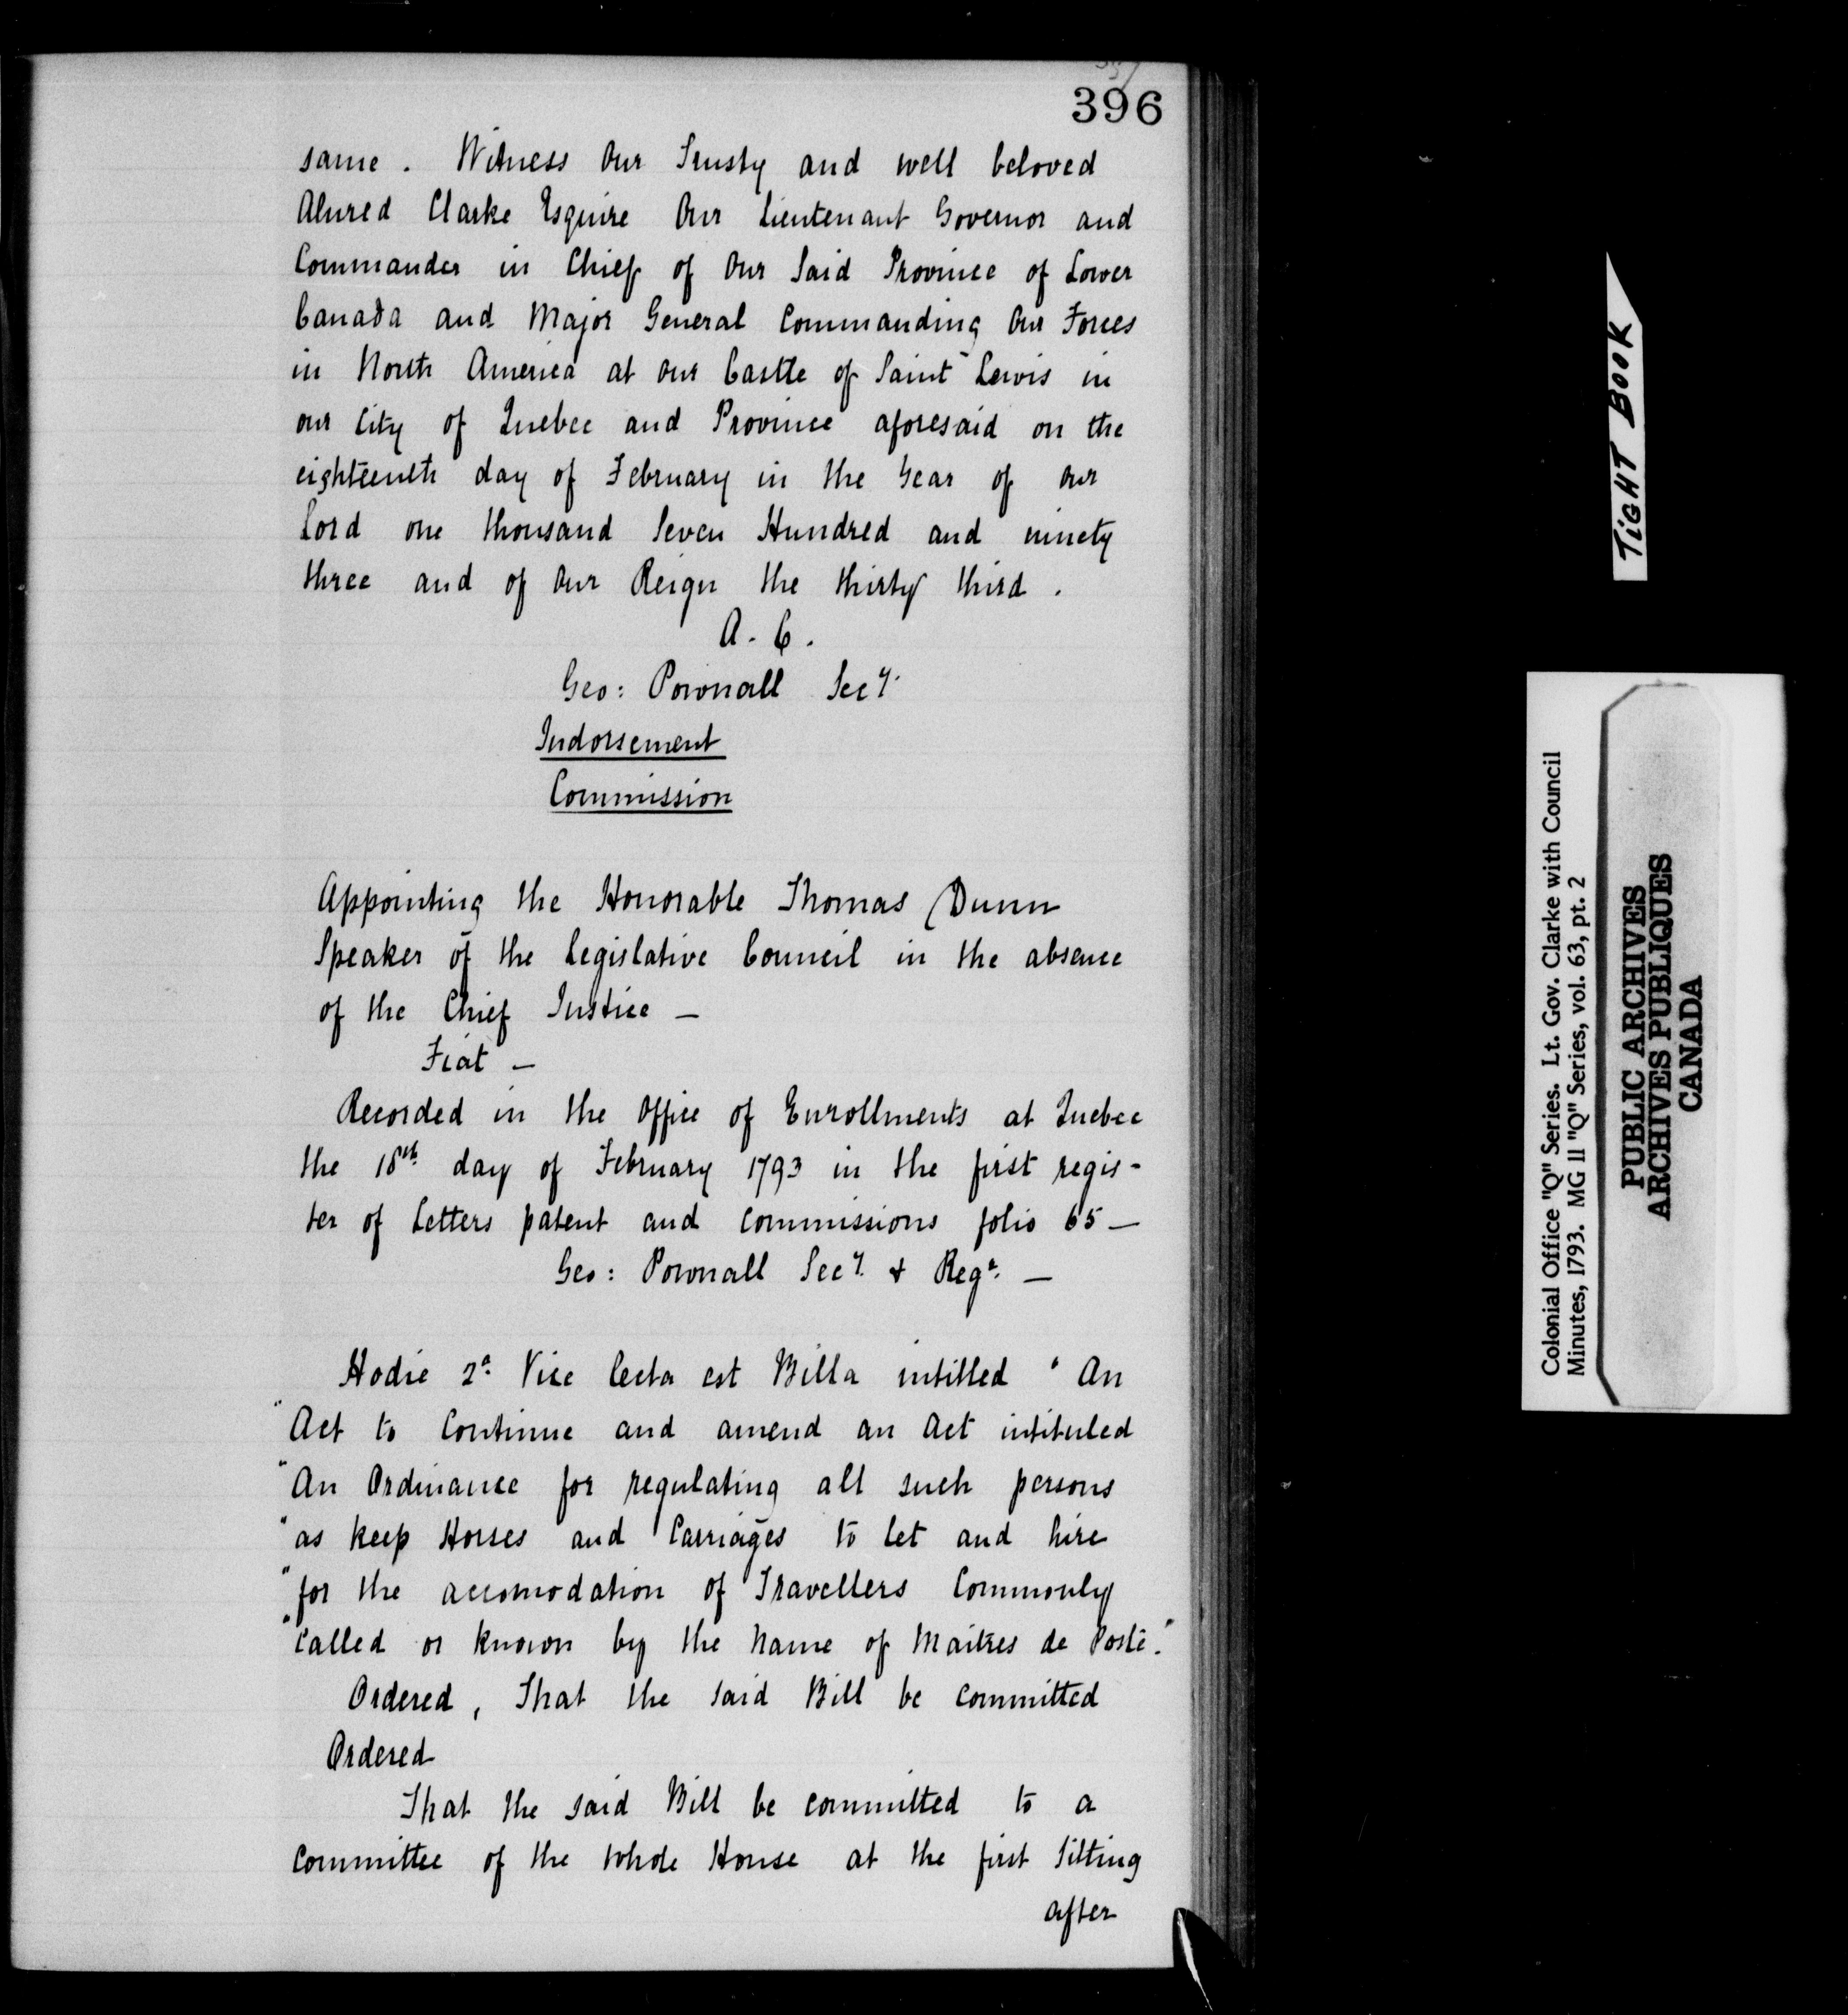 396
same. Witness Our Trusty and well beloved
Alured Clarke Esquire Our Lieutenant Governor and
Commander in Chief of Our Said Province of Lower
Canada and Major General Commanding Our Forces
in North America at our Castle of Saint Lewis in
our City of Quebec and Province aforesaid on the
eighteenth day of February in the Year of our
Lord one thousand Seven Hundred and ninety
three and of Our Reign the thirty third.
A. C.
Geo: Pownall Secy.
Indorsement
Commission
Appointing the Honorable Thomas Dunn
Speaker of the Legislative Council in the absence
of the Chief Justice —
Fiat —
Recorded in the Office of Enrollments at Quebec
the 18th day of February 1793 in the first regis-
ter of Letters patent and commissions folio 65 —
Geo: Pownall Secy. & Regr. —
Hodie 2a. Vice lecta est Billa intitled " An
" Act to Continue and amend an Act intituled
" An Ordinance for regulating all such persons
" as keep Horses and Carriages to let and hire
" for the accomodation of Travellers Commonly
" Called or known by the Name of Maitres de Poste."
Ordered, That the said Bill be committed
Ordered
That the said Bill be committed to a
Committee of the Whole House at the first Sitting
after
TIGHT BOOK
Colonial Office "Q" Series. Lt. Gov. Clarke with Council
Minutes, 1793. MG 11 "Q" Series, vol. 63, pt. 2
PUBLIC ARCHIVES
ARCHIVES PUBLIQUES
CANADA